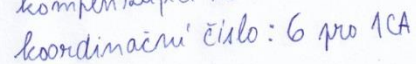 koordinační číslo: 6 pro 1CA